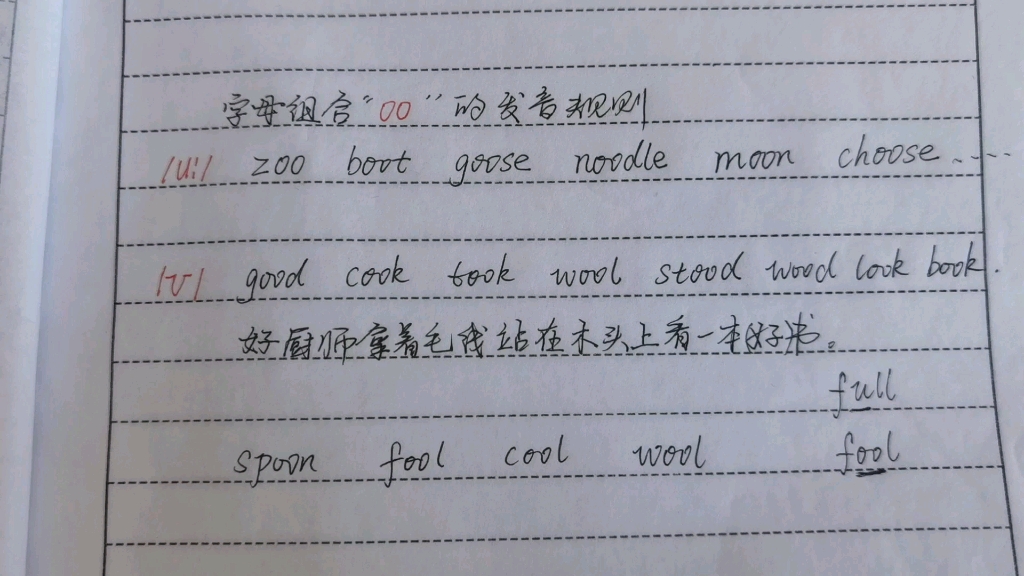 字母组合“oo”的发音规则
/u:/ zoo boot goose noodle moon choose.....
/ʊ/ good cook took wool stood wood look book.
好厨师拿着毛线站在木头上看一本好书。
full
spoon fool cool wool fool